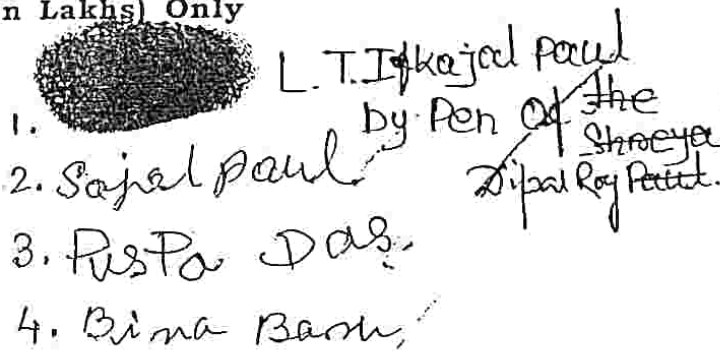 n Lakhs) Only
L.T.I of kajal paul
by Pen Of the
Shreya
Dipal Roy Paul.
1.
2. Sajal paul
3. PusPa Das.
4. Bina